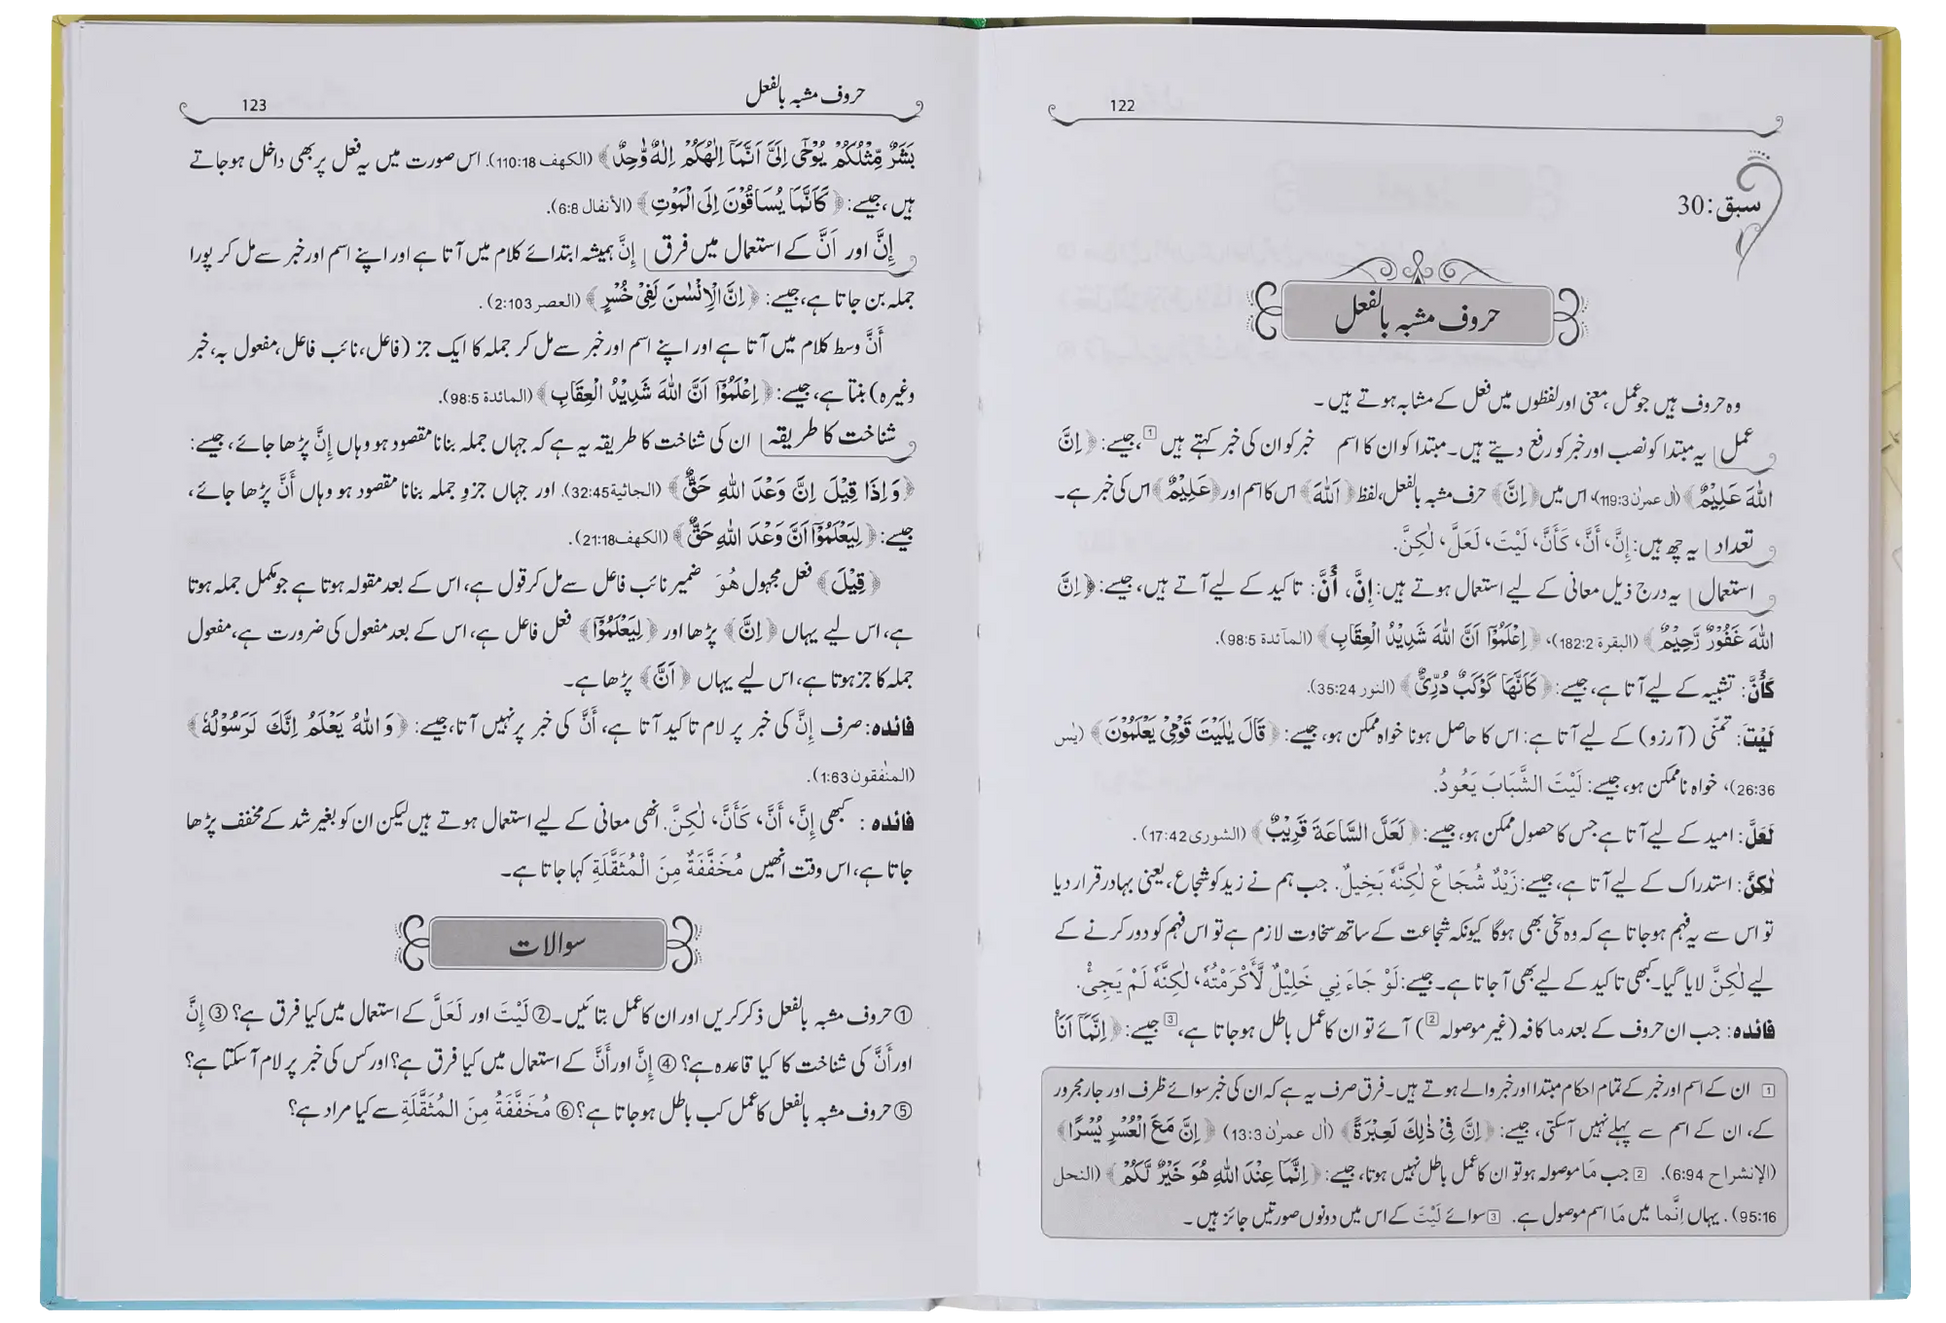 122
سبق:30
حروف مشبہ بالفعل
وہ حروف ہیں جو عمل، معنی اور لفظوں میں فعل کے مشابہ ہوتے ہیں۔
عمل یہ مبتدا کو نصب اور خبر کو رفع دیتے ہیں۔ مبتدا کو ان کا اسم خبر کو ان کی خبر کہتے ہیں [1]، جیسے: ﴿ اِنَّ
اللّٰهَ عَلِيْمٌ ﴾ (اٰل عمرٰن 119:3)، اس میں ﴿اِنَّ﴾ حرف مشبہ بالفعل، لفظ ﴿اَللّٰهَ﴾ اس کا اسم اور ﴿عَلِيْمٌ﴾ اس کی خبر ہے۔
تعداد یہ چھ ہیں: إِنَّ، أَنَّ، كَأَنَّ، لَيْتَ، لَعَلَّ، لٰكِنَّ.
استعمال یہ درج ذیل معانی کے لیے استعمال ہوتے ہیں: إِنَّ، أَنَّ: تاکید کے لیے آتے ہیں، جیسے: ﴿ اِنَّ
اللّٰهَ غَفُوْرٌ رَّحِيْمٌ ﴾ (البقرة 182:2)، ﴿ اِعْلَمُوْٓا اَنَّ اللّٰهَ شَدِيْدُ الْعِقَابِ ﴾ (المآئدة 98:5).
كَأَنَّ: تشبیہ کے لیے آتا ہے، جیسے: ﴿ كَاَنَّهَا كَوْكَبٌ دُرِّيٌّ ﴾ (النور 35:24).
لَيْتَ: تمنّی (آرزو) کے لیے آتا ہے: اس کا حاصل ہونا خواہ ممکن ہو، جیسے: ﴿ قَالَ يٰلَيْتَ قَوْمِيْ يَعْلَمُوْنَ ﴾ (یٰس
26:36)، خواہ ناممکن ہو، جیسے: لَيْتَ الشَّبَابَ يَعُودُ.
لَعَلَّ: امید کے لیے آتا ہے جس کا حصول ممکن ہو، جیسے: ﴿ لَعَلَّ السَّاعَةَ قَرِيْبٌ ﴾ (الشورى 17:42).
لٰكِنَّ: استدراک کے لیے آتا ہے، جیسے: زَيْدٌ شُجَاعٌ لٰكِنَّهٗ بَخِيلٌ. جب ہم نے زید کو شجاع، یعنی بہادر قرار دیا
تو اس سے یہ فہم ہو جاتا ہے کہ وہ سخی بھی ہوگا کیونکہ شجاعت کے ساتھ سخاوت لازم ہے تو اس فہم کو دور کرنے کے
لیے لٰكِنَّ لایا گیا۔ کبھی تاکید کے لیے بھی آ جاتا ہے۔ جیسے: لَوْ جَاءَنِي خَلِيْلٌ لَّأَكْرَمْتُهٗ، لٰكِنَّهٗ لَمْ يَجِئْ.
فائدہ: جب ان حروف کے بعد ما کافہ (غیر موصولہ [2]) آئے تو ان کا عمل باطل ہو جاتا ہے، [3] جیسے: ﴿ اِنَّمَآ اَنَا۠
[1] ان کے اسم اور خبر کے تمام احکام مبتدا اور خبر والے ہوتے ہیں۔ فرق صرف یہ ہے کہ ان کی خبر سوائے ظرف اور جار مجرور
کے، ان کے اسم سے پہلے نہیں آ سکتی، جیسے: ﴿ اِنَّ فِيْ ذٰلِكَ لَعِبْرَةً ﴾ (اٰل عمرٰن 13:3) ﴿ اِنَّ مَعَ الْعُسْرِ يُسْرًا ﴾
(الإنشراح 6:94). [2] جب مَا موصولہ ہو تو ان کا عمل باطل نہیں ہوتا، جیسے: ﴿ اِنَّمَا عِنْدَ اللّٰهِ هُوَ خَيْرٌ لَّكُمْ ﴾ (النحل
95:16). یہاں إِنَّما میں مَا اسم موصول ہے. [3] سوائے لَيْتَ کے اس میں دونوں صورتیں جائز ہیں۔
حروف مشبہ بالفعل
123
بَشَرٌ مِّثْلُكُمْ يُوْحٰٓى اِلَيَّ اَنَّمَآ اِلٰهُكُمْ اِلٰهٌ وّٰحِدٌ ﴾ (الكهف 110:18). اس صورت میں یہ فعل پر بھی داخل ہو جاتے
ہیں، جیسے: ﴿ كَاَنَّمَا يُسَاقُوْنَ اِلَى الْمَوْتِ ﴾ (الأنفال 6:8).
إِنَّ اور اَنَّ کے استعمال میں فرق إِنَّ ہمیشہ ابتدائے کلام میں آتا ہے اور اپنے اسم اور خبر سے مل کر پورا
جملہ بن جاتا ہے، جیسے: ﴿ اِنَّ الْاِنْسٰنَ لَفِيْ خُسْرٍ ﴾ (العصر 2:103).
أَنَّ وسط کلام میں آتا ہے اور اپنے اسم اور خبر سے مل کر جملہ کا ایک جز (فاعل، نائب فاعل، مفعول بہ، خبر
وغیرہ) بنتا ہے، جیسے: ﴿ اِعْلَمُوْٓا اَنَّ اللّٰهَ شَدِيْدُ الْعِقَابِ ﴾ (المائدة 98:5).
شناخت کا طریقہ ان کی شناخت کا طریقہ یہ ہے کہ جہاں جملہ بنانا مقصود ہو وہاں إِنَّ پڑھا جائے، جیسے:
﴿ وَاِذَا قِيْلَ اِنَّ وَعْدَ اللّٰهِ حَقٌّ ﴾ (الجاثية 32:45). اور جہاں جزوِ جملہ بنانا مقصود ہو وہاں أَنَّ پڑھا جائے،
جیسے: ﴿ لِيَعْلَمُوْٓا اَنَّ وَعْدَ اللّٰهِ حَقٌّ ﴾ (الكهف 21:18).
﴿ قِيْلَ ﴾ فعل مجہول هُوَ ضمیر نائب فاعل سے مل کر قول ہے، اس کے بعد مقولہ ہوتا ہے جو مکمل جملہ ہوتا
ہے، اس لیے یہاں ﴿ اِنَّ ﴾ پڑھا اور ﴿ لِيَعْلَمُوْٓا ﴾ فعل فاعل ہے، اس کے بعد مفعول کی ضرورت ہے، مفعول
جملہ کا جز ہوتا ہے، اس لیے یہاں ﴿ اَنَّ ﴾ پڑھا ہے۔
فائدہ: صرف إِنَّ کی خبر پر لام تاکید آتا ہے، أَنَّ کی خبر پر نہیں آتا، جیسے: ﴿ وَاللّٰهُ يَعْلَمُ اِنَّكَ لَرَسُوْلُهٗ ﴾
(المنٰفقون 1:63).
فائدہ: کبھی إِنَّ، أَنَّ، كَأَنَّ، لٰكِنَّ. انھی معانی کے لیے استعمال ہوتے ہیں لیکن ان کو بغیر شد کے مخفف پڑھا
جاتا ہے، اس وقت انھیں مُخَفَّفَةٌ مِنَ الْمُثَقَّلَةِ کہا جاتا ہے۔
سوالات
① حروف مشبہ بالفعل ذکر کریں اور ان کا عمل بتائیں۔ ② لَيْتَ اور لَعَلَّ کے استعمال میں کیا فرق ہے؟ ③ إِنَّ
اور أَنَّ کی شناخت کا کیا قاعدہ ہے؟ ④ إِنَّ اور أَنَّ کے استعمال میں کیا فرق ہے؟ اور کس کی خبر پر لام آ سکتا ہے؟
⑤ حروف مشبہ بالفعل کا عمل کب باطل ہو جاتا ہے؟ ⑥ مُخَفَّفَةُ مِنَ المُثَقَّلَةِ سے کیا مراد ہے؟